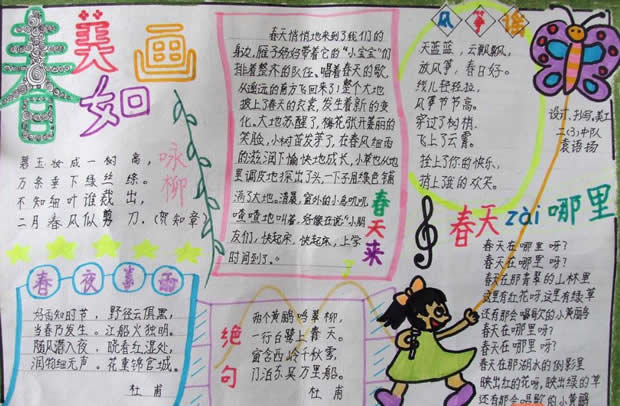 春美如画
咏柳
碧玉妆成一树高，
万条垂下绿丝绦。
不知细叶谁裁出，
二月春风似剪刀。(贺知章)
春夜喜雨
好雨知时节，野径云俱黑，
当春乃发生。江船火独明。
随风潜入夜，晓看红湿处，
润物细无声。花重锦官城。
杜甫
春天来了
春天悄悄地来到了我们的
身边,雁子妈妈带着它的“小宝宝”们
排着整齐的队伍、唱着春天的歌,
从遥远的南方飞回来了!整个大地
披上了春天的衣裳,发生着新的变
化。大地苏醒了,梅花张开美丽的
笑脸,小树苗发芽了,在春风细雨
的滋润下愉快地成长,小草也从地
里调皮地探出了头,一下子用绿色铺
满了大地。清晨,窗外的小鸟叽叽
喳喳地叫着,好像在说:“小朋
友们,快起床,快起床,上学
时间到了。”
绝句
两个黄鹂鸣翠柳,
一行白鹭上青天。
窗含西岭千秋雪,
门泊东吴万里船。
杜甫
风筝谣
天蓝蓝，云飘飘，
放风筝，春日好。
线儿轻轻拉，
风筝节节高。
穿过了树梢，
飞上了云霄。
拴上了你的快乐，
捎上我的欢天。
设计、抄写、美工
二(3)中队
袁语扬
春天zài哪里
春天在哪里呀?
春天在哪里呀?
春天在那青翠的山林里
这里有红花呀,这里有绿草
还有那会唱歌的小黄鹂
春天在哪里呀?
春天在哪里呀?
春天在那湖水的倒影里
映出红的花呀,映出绿的草
还有那会唱歌的小黄鹂